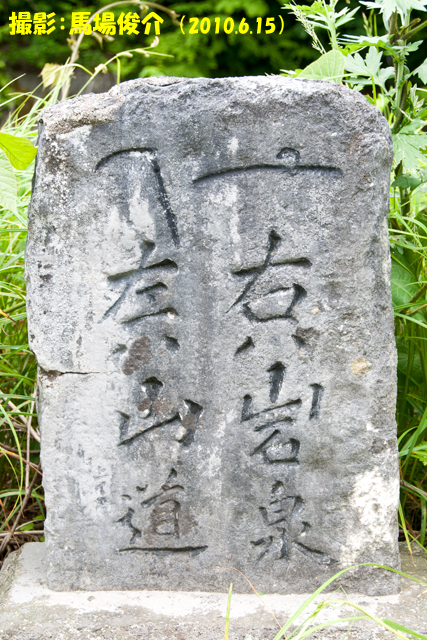 撮影：馬場俊介 （2010.6.15）
右ハ岩泉
左ハ山道